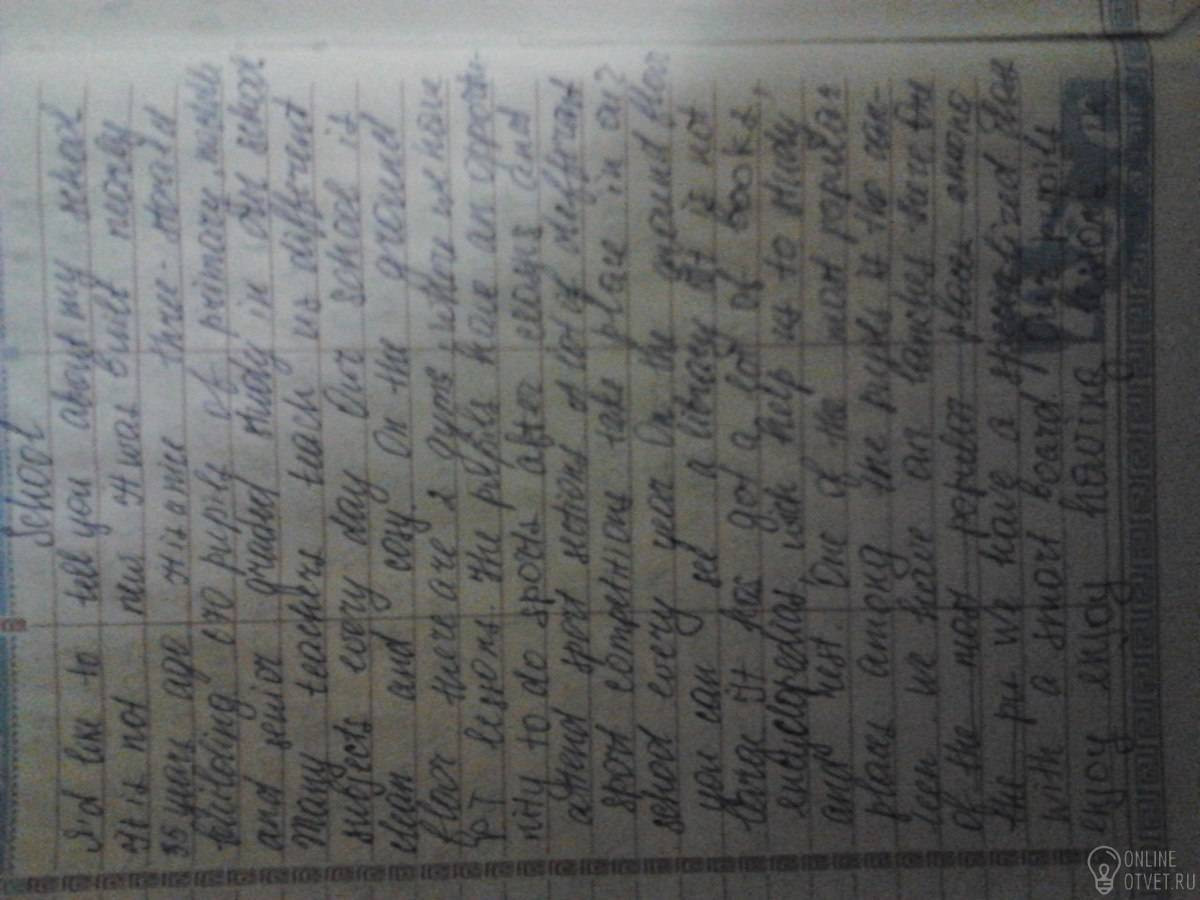 School
I'd like to tell you about my school
It is not new. It was built nearly
35 years ago It is a nice three-storeyed
building 670 pupils of primary, middle
and senior grades study in our school
Many teachers teach us different
subjects every day Our school is
clean and cosy. On the ground
floor there are 2 gyms where we have
PT lessons. The pupils have an opportu-
nity to do sports after classes and
attend sport sections A lot of different
sport competitions take place in our
school every year On the ground floor
you can see a library It is not
large It has got a lot of books,
encyclopedias, which help us to study
and rest. One of the most popular
places among the pupils is the can-
teen we have our lunches here One
of the most popular place among
the pu we have a specialized class
with a smart board pupils
enjoy enjoy having lessons
ONLINE
OTVET.RU